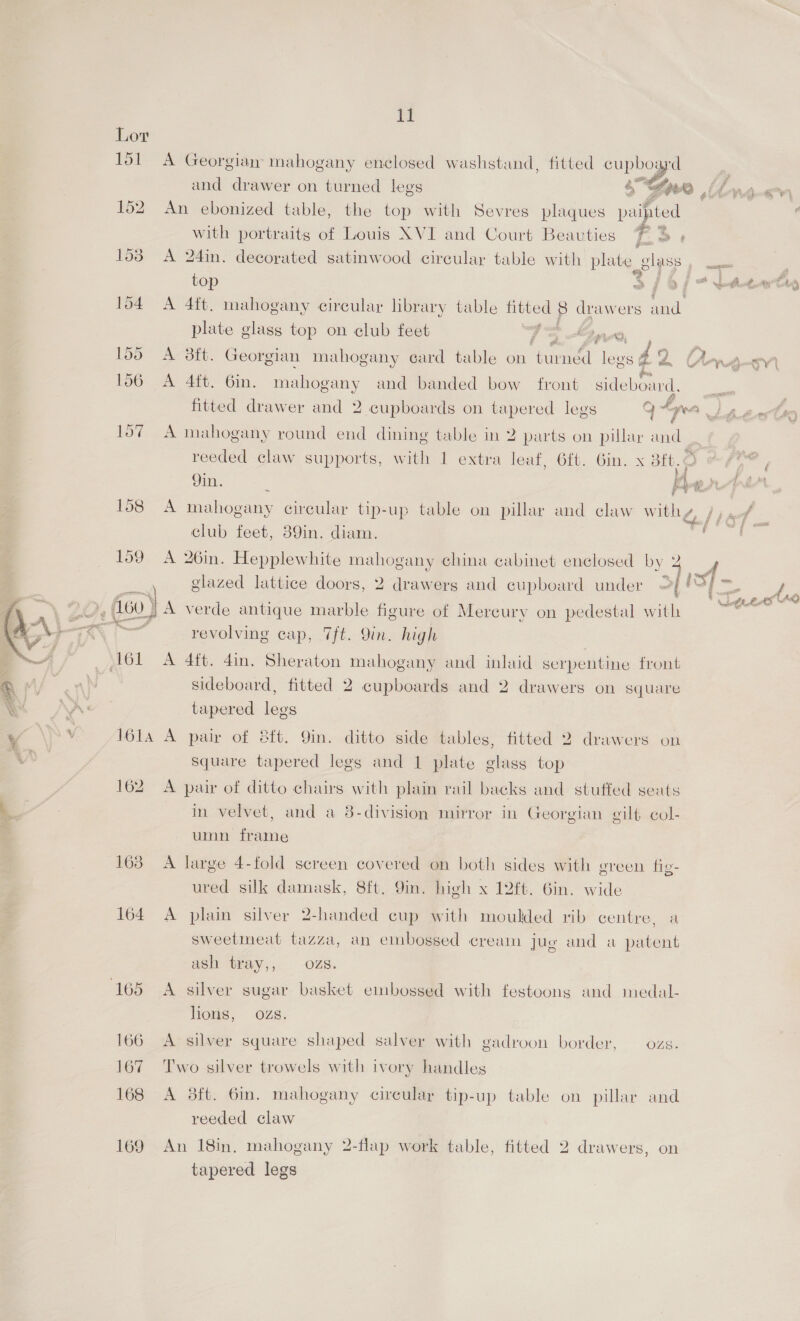 11
Lot
151 A Georgian mahogany enclosed washstand, fitted cupboard
and drawer on turned legs
152 An ebonized table, the top with Sevres plaques painted
with portraits of Louis XVI and Court Beauties
153 A 24in. decorated satinwood circular table with plate glass
top
154 A 4ft. mahogany circular library table fitted 8 drawers and
plate glass top on club feet
155 A 3ft. Georgian mahogany card table on turned legs
156 A 4ft. 6in. mahogany and banded bow front sideboard,
fitted drawer and 2 cupboards on tapered legs
157 A mahogany round end dining table in 2 parts on pillar and
reeded claw supports, with 1 extra leaf, 6ft. 6in. x 3ft.
9in.
158 A mahogany circular tip-up table on pillar and claw with
club feet, 39in. diam.
159 A 26in. Hepplewhite mahogany china cabinet enclosed by 2
glazed lattice doors, 2 drawers and cupboard under
160 A verde antique marble figure of Mercury on pedestal with
revolving cap, 7ft. 9in. high
161 A 4ft. 4in. Sheraton mahogany and inlaid serpentine front
sideboard, fitted 2 cupboards and 2 drawers on square
tapered legs
161A A pair of 3ft. 9in. ditto side tables, fitted 2 drawers on
square tapered legs and 1 plate glass top
162 A pair of ditto chairs with plain rail backs and stuffed seats
in velvet, and a 3-division mirror in Georgian gilt col-
umn frame
163 A large 4-fold screen covered on both sides with green fig-
ured silk damask, 8ft. 9in. high x 12ft. 6in. wide
164 A plain silver 2-handed cup with moulded rib centre, a
sweetmeat tazza, an embossed cream jug and a patent
ash tray,, ozs.
165 A silver sugar basket embossed with festoons and medal-
lions, ozs.
166 A silver square shaped salver with gadroon border, ozs.
167 Two silver trowels with ivory handles
168 A 3ft. 6in. mahogany circular tip-up table on pillar and
reeded claw
169 An 18in. mahogany 2-flap work table, fitted 2 drawers, on
tapered legs